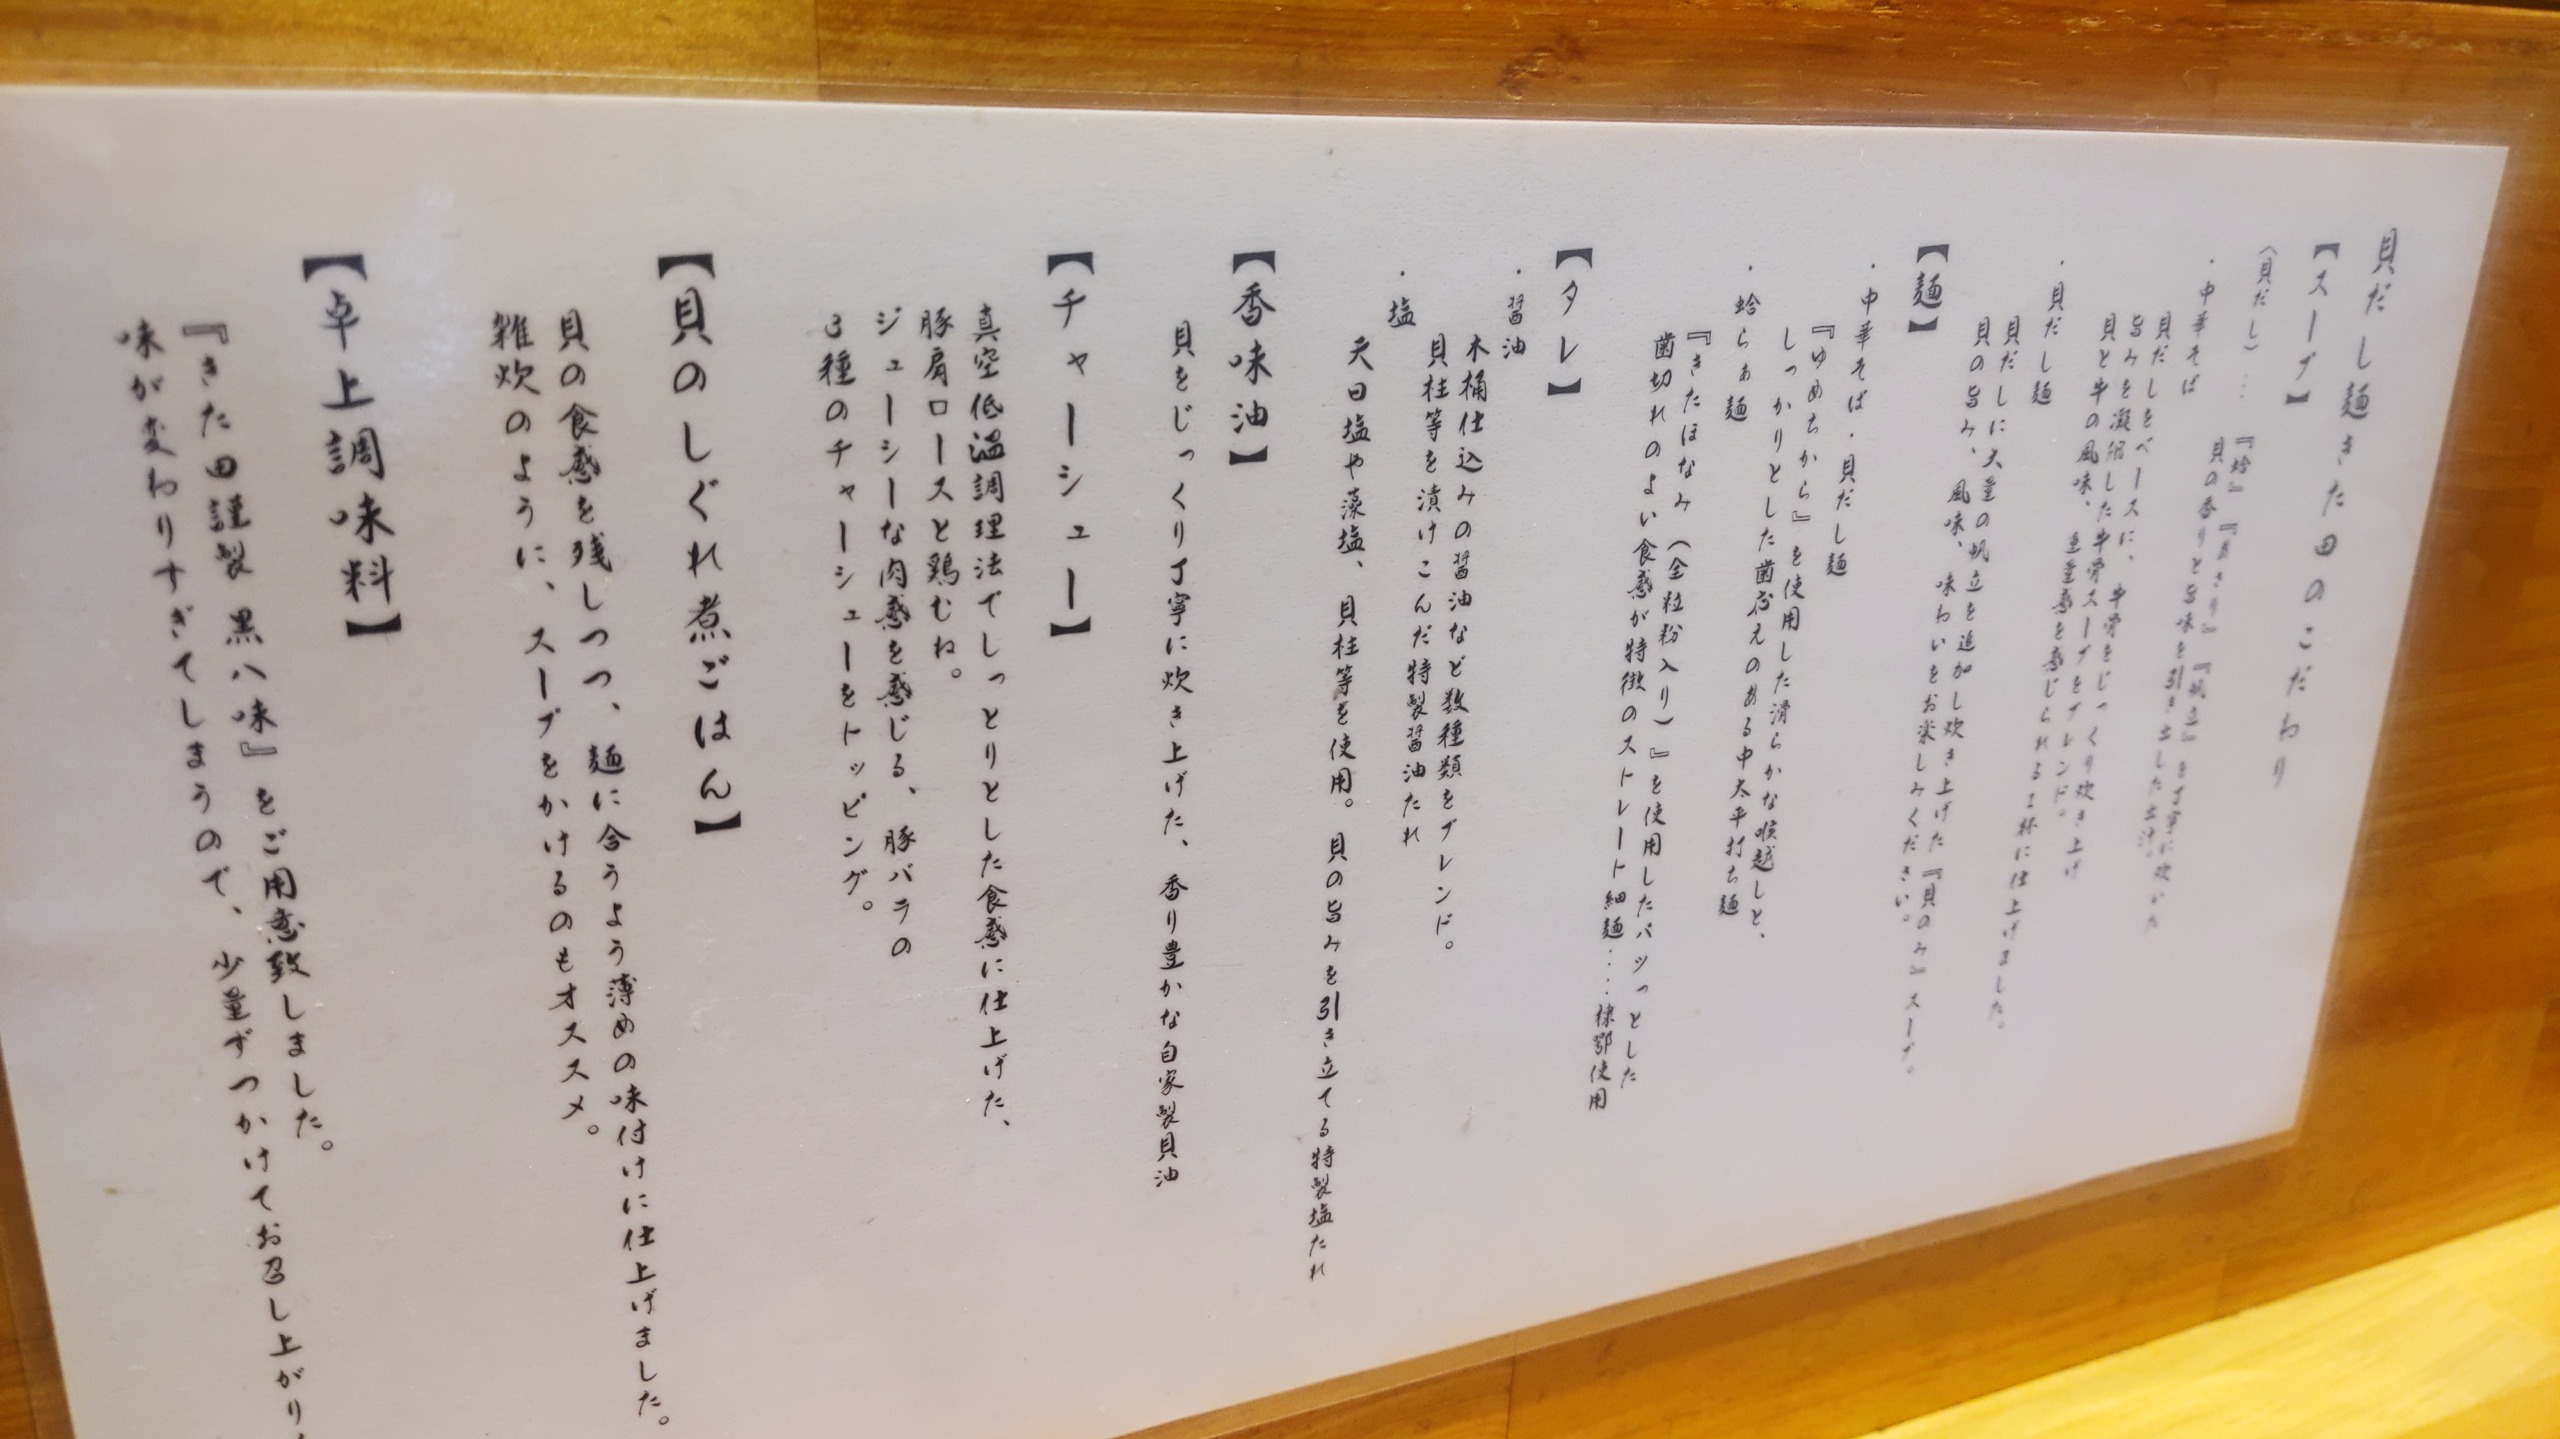 貝だし麺きた田のこだわり
【スープ】
(貝だし)… 『蛤』『あさり』『帆立』を丁寧に炊いた
貝の香りと旨味を引き出した出汁。
・中華そば
貝だしをベースに、牛骨をじっくり炊き上げ
旨みを凝縮した牛骨スープをブレンド。
貝と牛の風味、重量感を感じられる1杯に仕上げました。
・貝だし麺
貝だしに大量の帆立を追加し炊き上げた『貝のみ』スープ。
貝の旨み、風味、味わいをお楽しみください。
【麺】
・中華そば・貝だし麺
『ゆめちから』を使用した滑らかな喉越しと、
しっかりとした歯応えのある中太平打ち麺
・蛤らぁ麺
『きたほなみ(全粒粉入り)』を使用したパツっとした
歯切れのよい食感が特徴のストレート細麺……棣鄂使用
【タレ】
・醤油
木桶仕込みの醤油など数種類をブレンド。
貝柱等を漬けこんだ特製醤油たれ
・塩
天日塩や藻塩、貝柱等を使用。貝の旨みを引き立てる特製塩たれ
【香味油】
貝をじっくり丁寧に炊き上げた、香り豊かな自家製貝油
【チャーシュー】
真空低温調理法でしっとりとした食感に仕上げた、
豚肩ロースと鶏むね。
ジューシーな肉感を感じる、豚バラの
3種のチャーシューをトッピング。
【貝のしぐれ煮ごはん】
貝の食感を残しつつ、麺に合うよう薄めの味付けに仕上げました。
雑炊のように、スープをかけるのもオススメ。
【卓上調味料】
『きた田謹製 黒八味』をご用意致しました。
味が変わりすぎてしまうので、少量ずつかけてお召し上がり